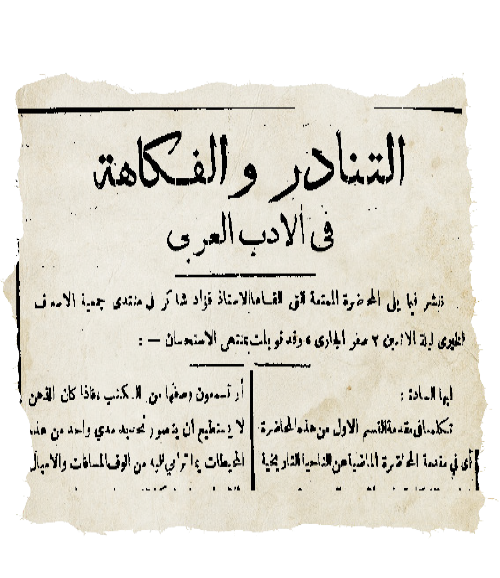 التنادر و الفكاهة
في الادب العربي
ننشر فيما يلي المحاضرة الممتعة التي القاها الاستاذ فؤاد شاكر في منتدى جمعية الاسعاف
الخيري ليلة الاثنين ٢ صفر الجاري وقد قوبلت بمنتهى الاستحسان — :
ايها السادة :
تكلمنا في مقدمة القسم الاول من هذه المحاضرة
أي في مقدمة المحاضرة الماضية عن الناحية التاريخية
أو تسمعون وصفها من الكتب فاذا كان الذهن
لا يستطيع أن يتصور تحديد مدى واحد من هذه
المحيطات بما ترامي اليه من الوف المسافات والاميال